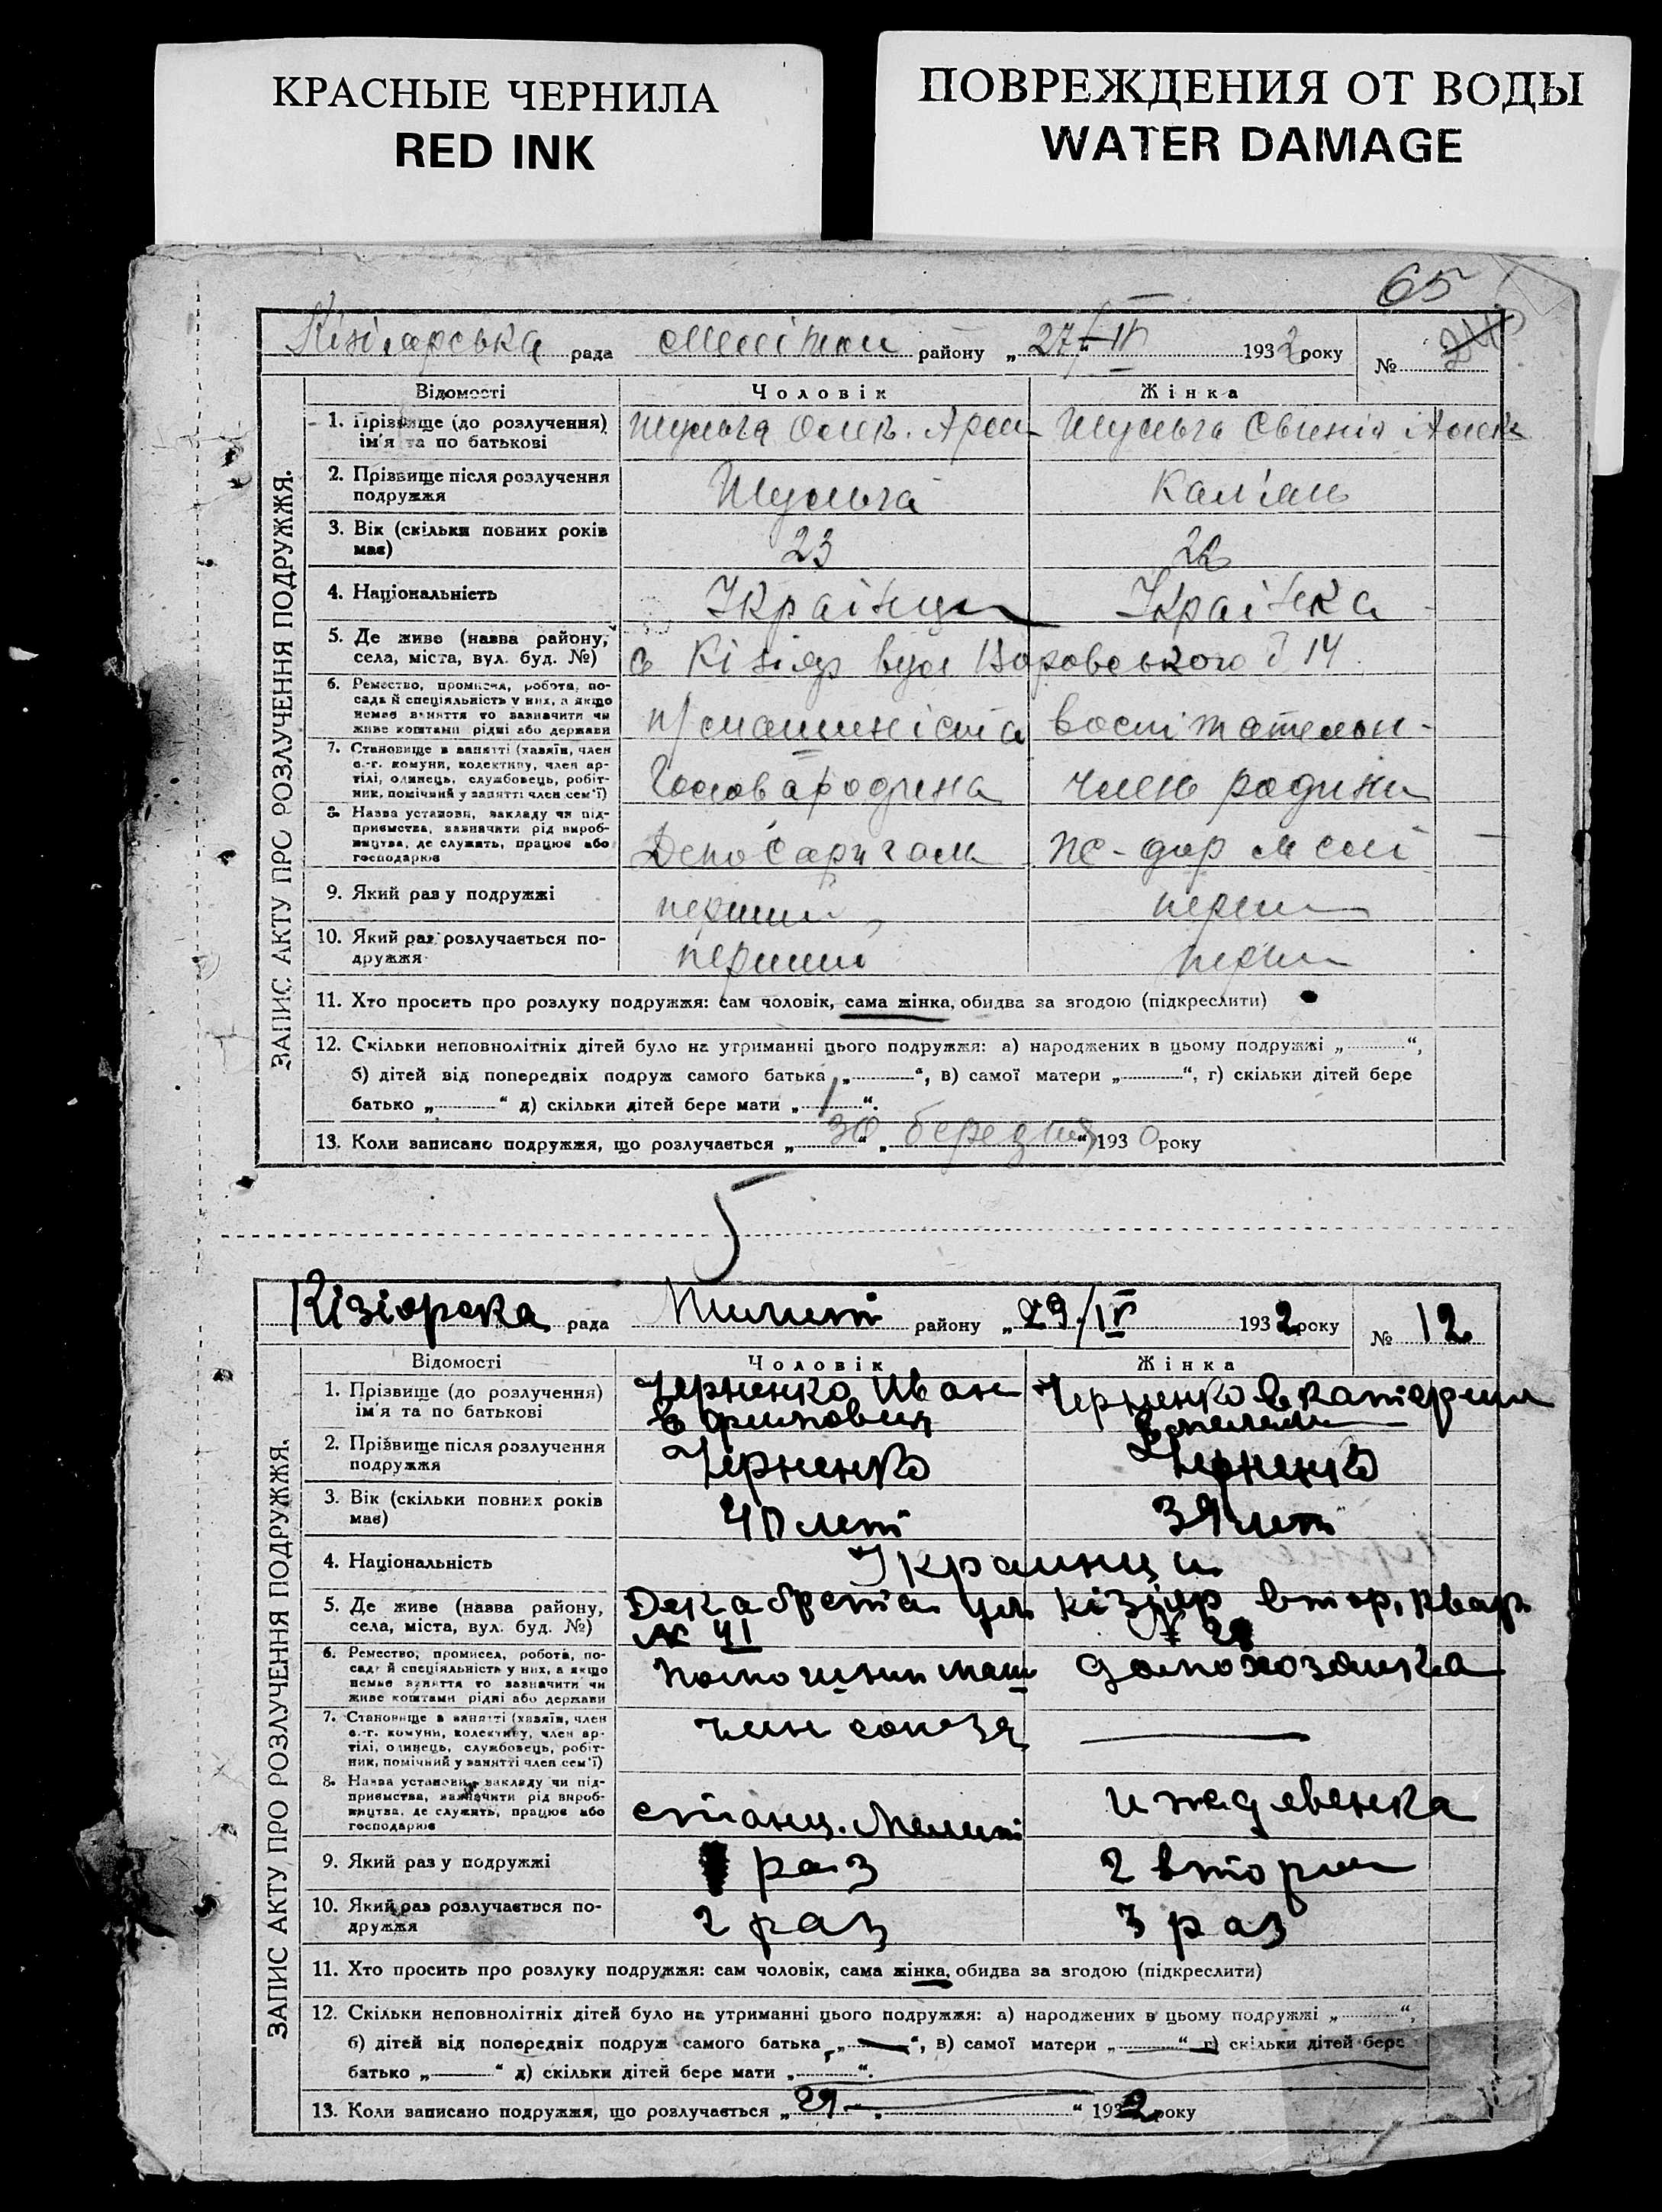 КРАСНЫЕ ЧЕРНИЛА
RED INK
ПОВРЕЖДЕНИЯ ОТ ВОДЫ
WATER DAMAGE
65
Кізіярська рада Меліт району „27/IV 1932 року №
ЗАПИС АКТУ ПРО РОЗЛУЧЕННЯ ПОДРУЖЖЯ.
Відомості Чоловік Жінка
1. Прізвище (до розлучення) ім'я та по батькові Шульга Олек. Шульга Євгенія Алек
2. Прізвище після розлучення подружжя Шульга
3. Вік (скільки повних років має) 23 22
4. Національність Українец Українка
5. Де живе (назва району, села, міста, вул. буд. №) с Кізіяр вул Воровського 14
6. Ремество, промисел, робота, посада й спеціяльність у них, а якщо немає заняття то зазначити чи живе коштами рідні або держави п/машиніста воспітательн
7. Становище в занятті (хазяїн, член с.-г. комуни, колективу, член артілі, одинець, службовець, робітник, помічний у занятті член сем'ї) Голова родина член родини
8. Назва установи, закладу чи підприємства, зазначити рід виробництва, де служить, працює або господарює Депо
9. Який раз у подружжі перший перший
10. Який раз розлучається подружжя перший перший
11. Хто просить про розлуку подружжя: сам чоловік, сама жінка, обидва за згодою (підкреслити)
12. Скільки неповнолітніх дітей було на утриманні цього подружжя: а) народжених в цьому подружжі „ “,
б) дітей від попередніх подруж самого батька „ “, в) самої матери „ “, г) скільки дітей бере
батько „ “ д) скільки дітей бере мати „1“.
13. Коли записано подружжя, що розлучається „30“ „березня“ 1930 року
5
Кізіярска рада Мелит району „29/IV 1932 року № 12
ЗАПИС АКТУ ПРО РОЗЛУЧЕННЯ ПОДРУЖЖЯ.
Відомості Чоловік Жінка
1. Прізвище (до розлучення) ім'я та по батькові Черненко Иван Черненко Екатерин
2. Прізвище після розлучення подружжя Черненко Черненко
3. Вік (скільки повних років має) 40 лет 39 лет
4. Національність Украинци
5. Де живе (назва району, села, міста, вул. буд. №) Декабреста ул. № 41 Кізіяр втор. квар.
6. Ремество, промисел, робота, посада й спеціяльність у них, а якщо немає заняття то зазначити чи живе коштами рідні або держави помошник маш домохозаика
7. Становище в занятті (хазяїн, член с.-г. комуни, колективу, член артілі, одинець, службовець, робітник, помічний у занятті член сем'ї) член союза
8. Назва установи, закладу чи підприємства, зазначити рід виробництва, де служить, працює або господарює станц. Мелит иждевенка
9. Який раз у подружжі раз 2 втори
10. Який раз розлучається подружжя 2 раз 3 раз
11. Хто просить про розлуку подружжя: сам чоловік, сама жінка, обидва за згодою (підкреслити)
12. Скільки неповнолітніх дітей було на утриманні цього подружжя: а) народжених в цьому подружжі „ “,
б) дітей від попередніх подруж самого батька „ “, в) самої матери „ “ г) скільки дітей бере
батько „ “ д) скільки дітей бере мати „ “.
13. Коли записано подружжя, що розлучається „29 “ 1932 року